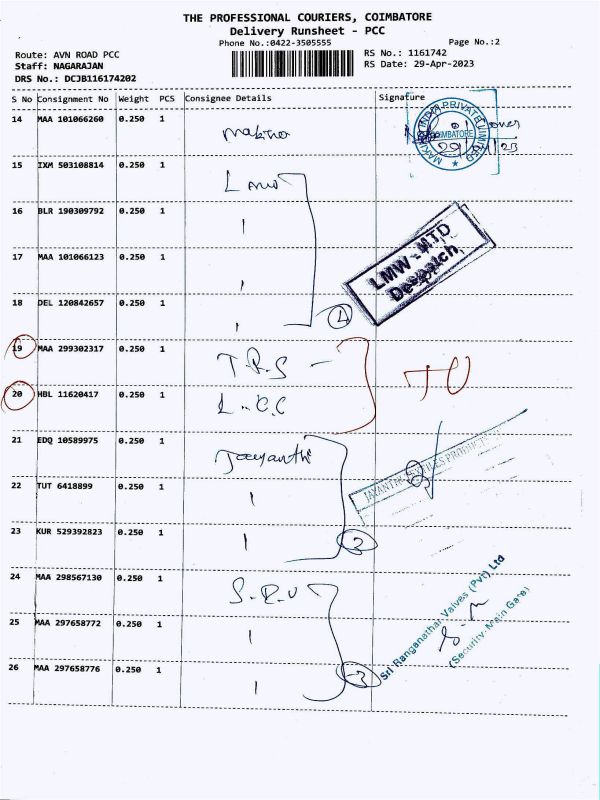 THE PROFESSIONAL COURIERS, COIMBATORE
Delivery Runsheet - PCC
Phone No.:0422-3505555
Page No.:2
Route: AVN ROAD PCC
RS No.: 1161742
Staff: NAGARAJAN
RS Date: 29-Apr-2023
DRS No.: DCJB116174202
S No Consignment No Weight PCS Consignee Details Signature
14 MAA 101066260 0.250 1
MAKINO INDIA PRIVATE LIMITED
COIMBATORE
15 IXM 503108814 0.250 1
16 BLR 190309792 0.250 1
17 MAA 101066123 0.250 1
LMW - MTD
Despatch
18 DEL 120842657 0.250 1
4
19 MAA 299302317 0.250 1 T.R.S
20 HBL 11620417 0.250 1 L.C.C
21 EDQ 10589975 0.250 1 Jayanthi
22 TUT 6418899 0.250 1
JAYANTHI TEXTILES PRODUCTS
23 KUR 529392823 0.250 1
3
24 MAA 298567130 0.250 1 S.R.V
25 MAA 297658772 0.250 1
26 MAA 297658776 0.250 1
3
Sri Ranganathar Valves (Pvt) Ltd
(Security-Main Gate)